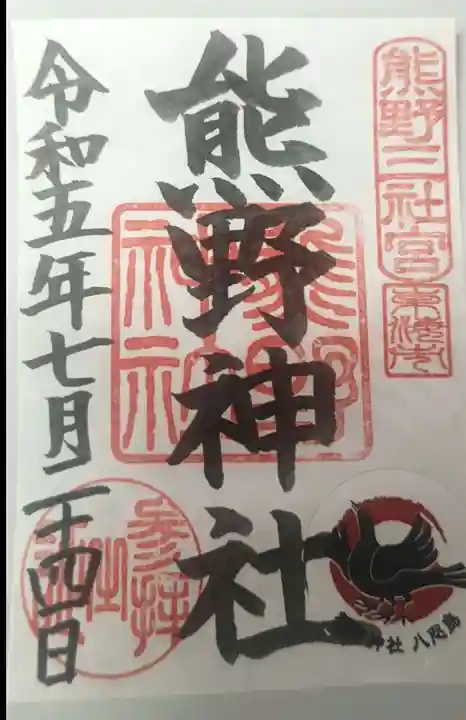 熊野三社宮
熊野神社
熊野神社
神社 八咫烏
参拝
令和五年七月二十四日